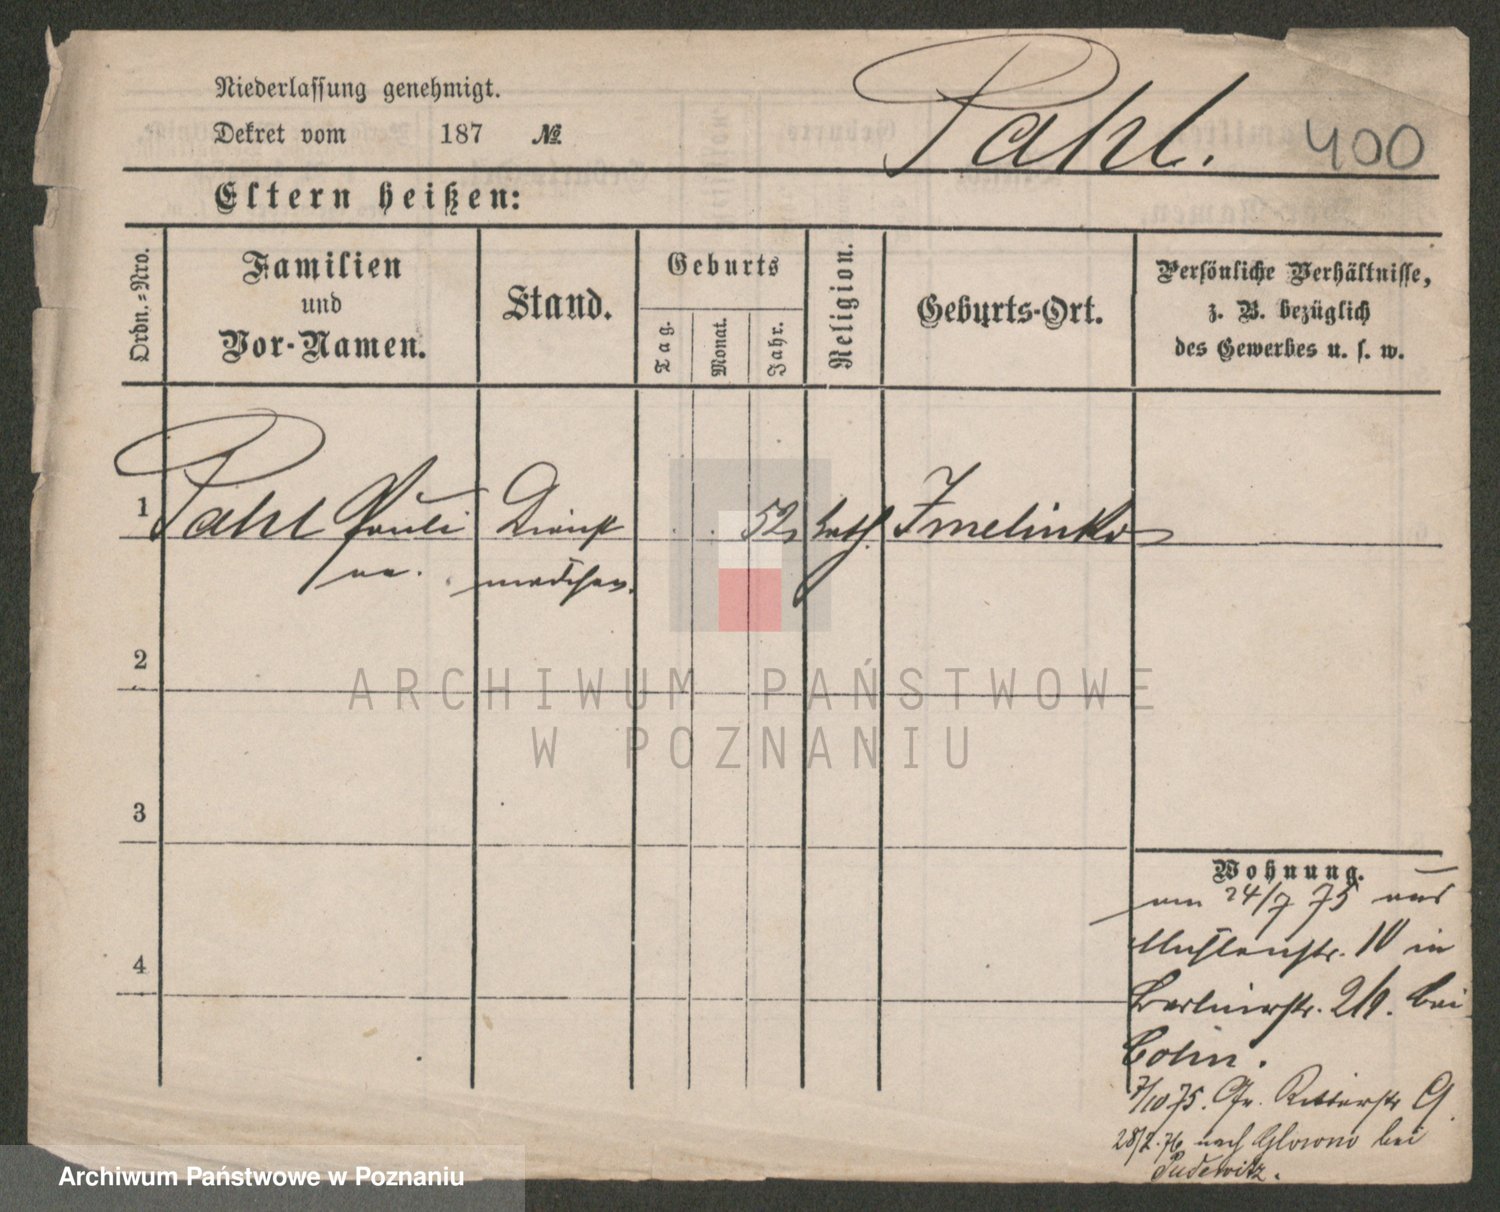 Niederlassung genehmigt.
Dekret vom 187 №
Pahl.
400
Eltern heißen:
Ordn.-Nro.
Familien
und
Vor-Namen.
Stand.
Geburts
Tag.
Monat.
Jahr.
Religion.
Geburts-Ort.
Persönliche Verhältnisse,
z. B. bezüglich
des Gewerbes u. s. w.
1 Pahl Pauli Dienst 52 kath. Imelinko
ne. mädchen.
2
ARCHIWUM PAŃSTWOWE
W POZNANIU
3
4
Wohnung.
am 24/7 75 aus
Mühlenstr. 10 in
Berlinerstr. 2/1. bei
Cohn.
7/10 75. Gr. Ritterstr 9.
28/2. 76 nach Glowno bei
Pudewitz.
Archiwum Państwowe w Poznaniu